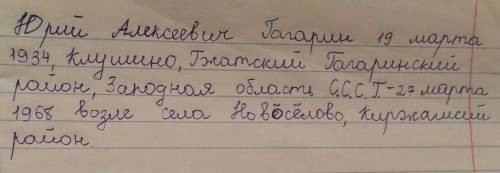 Юрий Алексеевич Гагарин 19 марта
1934, Клушино, Гжатский Гагаринский
район, Западная область С.С.С.Г-27 марта
1968 возле села Новосёлово, Киржаский
район.